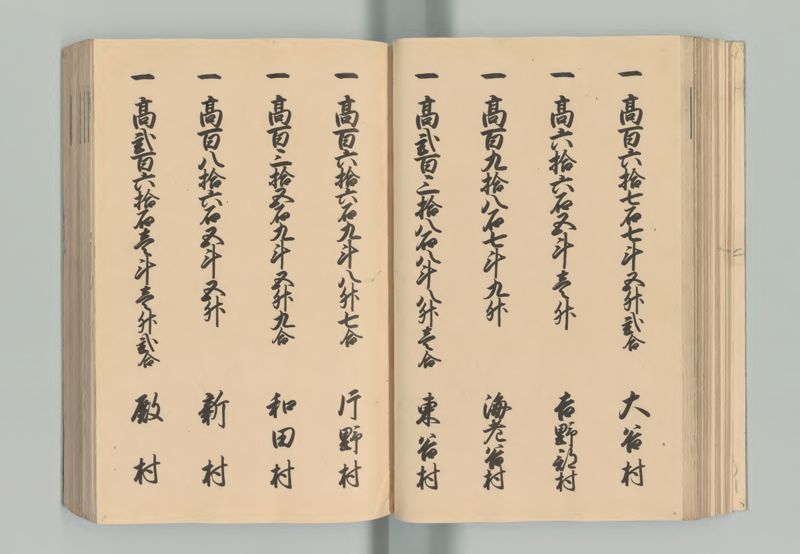 一 高百六拾七石七斗五升弐合 大谷村
一 高六拾六石五斗壱升 吉野郷村
一 高百九拾八石七斗九升 海老谷村
一 高弐百三拾八石八斗八升壱合 東谷村
一 高百六拾六石九斗八升七合 片野村
一 高百三拾五石九斗五升九合 和田村
一 高百八拾六石五斗五升 新村
一 高弐百六拾石壱斗壱升弐合 殿村